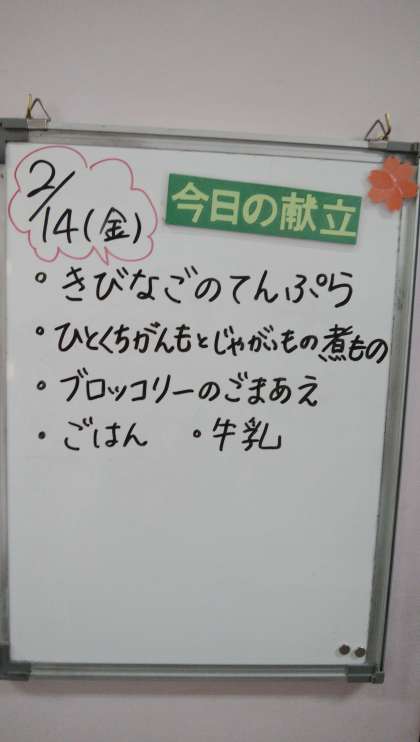 2/14(金)
今日の献立
・きびなごのてんぷら
・ひとくちがんもとじゃがいもの煮もの
・ブロッコリーのごまあえ
・ごはん ・牛乳